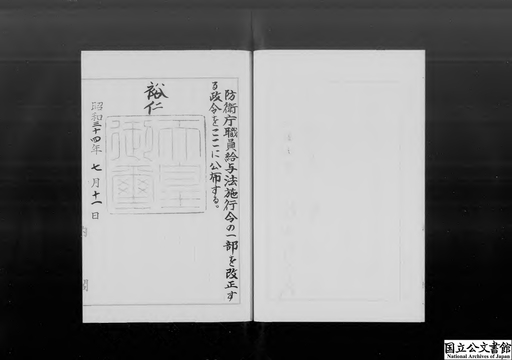 防衛庁職員給与法施行令の一部を改正す
る政令をここに公布する。
裕仁
天皇
御璽
昭和三十四年 七月十一日
国立公文書館
National Archives of Japan